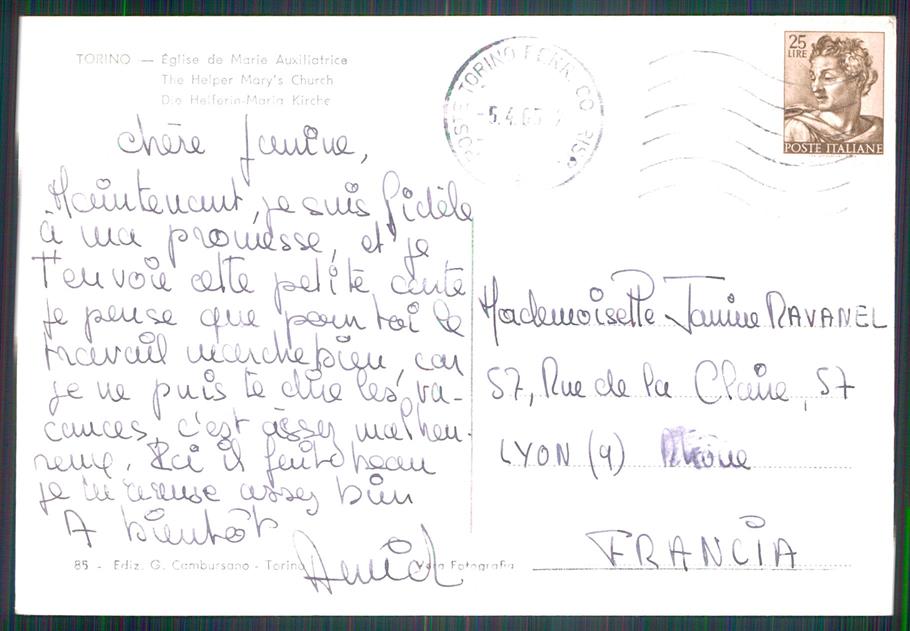 TORINO — Église de Marie Auxiliatrice
The Helper Mary's Church
Die Helferin-Maria Kirche
POSTE TORINO FERR. CO RISP
-5.4.65
25
LIRE
POSTE ITALIANE
Chère Janine,
Maintenant, je suis fidèle
à ma promesse, et je
t'envoie cette petite carte
je pense que pour toi le
travail marche bien, car
je ne puis te dire les va-
cances, c'est assez malheu-
reux. Ici il fait beau
je m'amuse assez bien
A bientôt
Mademoiselle Janine RAVANEL
57, Rue de la Claire, 57
LYON (9) Rhône
FRANCIA
85 - Ediz. G. Cambursano - Torino
Vera Fotografia